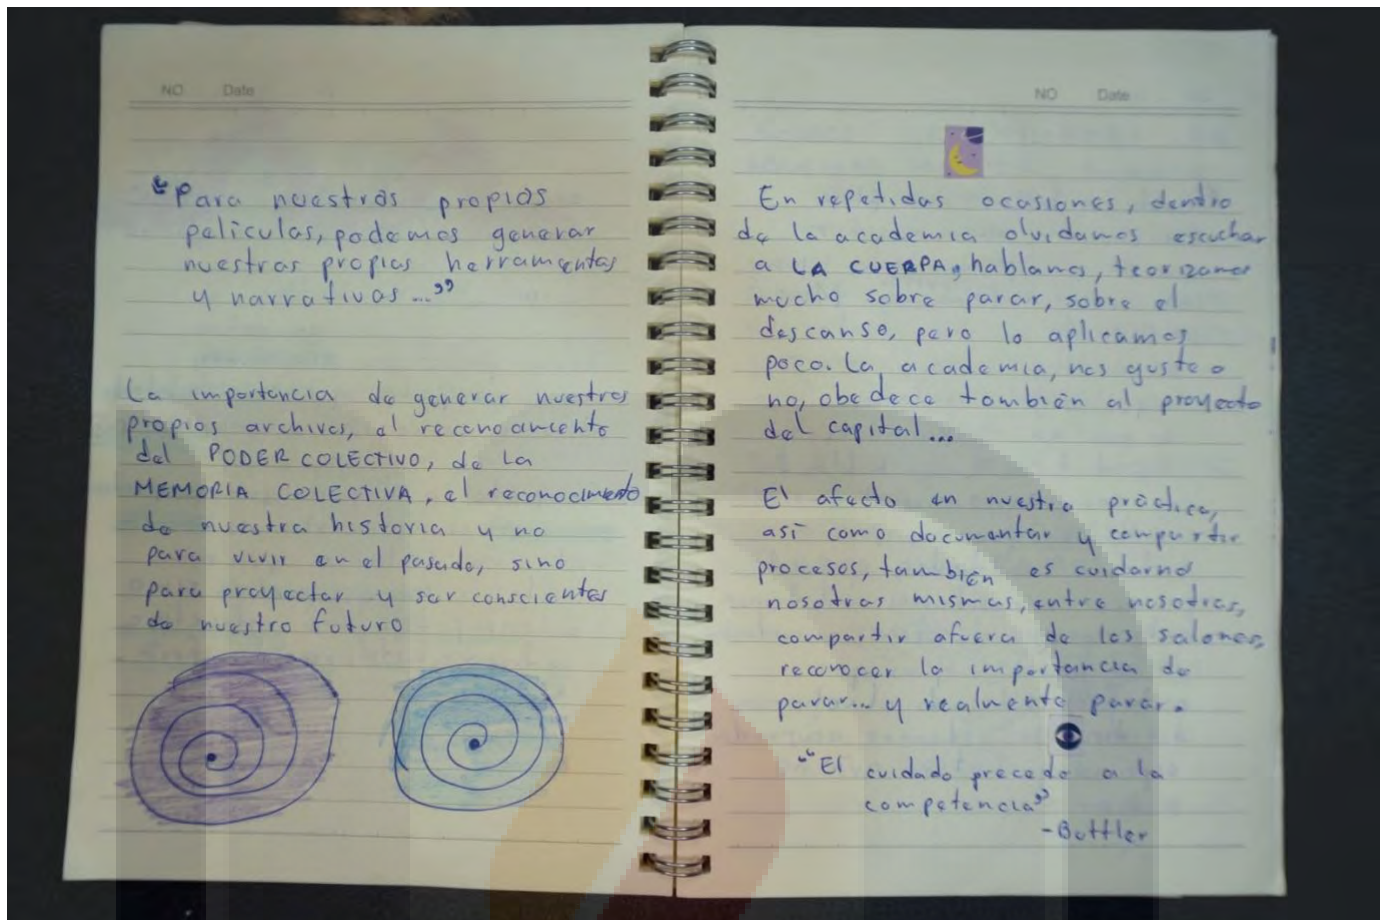 NO Date
“Para nuestras propias
películas, podemos generar
nuestras propias herramientas
y narrativas...”
La importancia de generar nuestros
propios archivos, el reconocimiento
del PODER COLECTIVO, de la
MEMORIA COLECTIVA, el reconocimiento
de nuestra historia y no
para vivir en el pasado, sino
para proyectar y ser conscientes
de nuestro futuro
NO Date
En repetidas ocasiones, dentro
de la academia olvidamos escuchar
a LA CUERPA, hablamos, teorizamos
mucho sobre parar, sobre el
descanso, pero lo aplicamos
poco. La academia, nos guste o
no, obedece también al proyecto
del capital...
El afecto en nuestra práctica,
así como documentar y compartir
procesos, también es cuidarno
nosotras mismas, entre nosotras,
compartir afuera de los salones,
reconocer la importancia de
parar... y realmente parar.
“El cuidado precede a la
competencia”
-Buttler